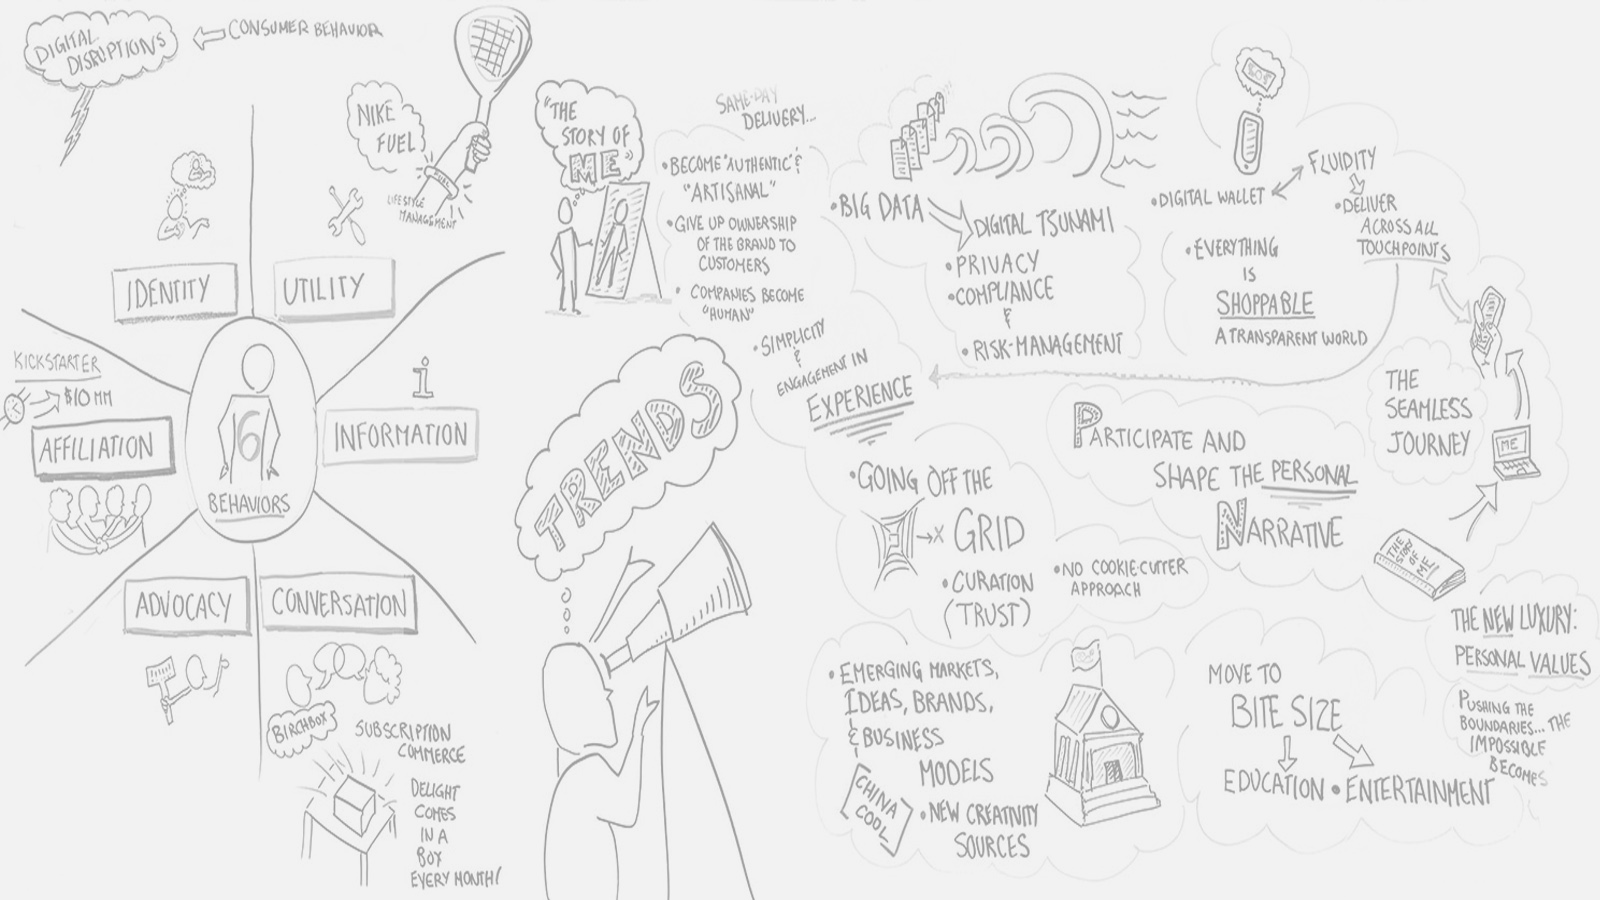 DIGITAL
DISRUPTIONS
CONSUMER BEHAVIOR
NIKE
FUEL
FUEL
LIFESTYLE
MANAGEMENT
IDENTITY
UTILITY
KICKSTARTER
$10 MM
AFFILIATION
i
INFORMATION
6
BEHAVIORS
ADVOCACY
CONVERSATION
BIRCHBOX
SUBSCRIPTION
COMMERCE
DELIGHT
COMES
IN A
BOX
EVERY MONTH!
"THE
STORY OF
ME"
TRENDS
SAME-DAY
DELIVERY...
• BECOME "AUTHENTIC" &
"ARTISANAL"
• GIVE UP OWNERSHIP
OF THE BRAND TO
CUSTOMERS
• COMPANIES BECOME
"HUMAN"
• SIMPLICITY
&
ENGAGEMENT IN
EXPERIENCE
• BIG DATA
DIGITAL TSUNAMI
• PRIVACY
• COMPLIANCE
&
• RISK-MANAGEMENT
• DIGITAL WALLET
FLUIDITY
• DELIVER
ACROSS ALL
TOUCHPOINTS
• EVERYTHING
IS
SHOPPABLE
A TRANSPARENT WORLD
THE
SEAMLESS
JOURNEY
ME
THE
STORY
OF
ME!
PARTICIPATE AND
SHAPE THE PERSONAL
NARRATIVE
• GOING OFF THE
X GRID
• CURATION
(TRUST)
• NO COOKIE-CUTTER
APPROACH
• EMERGING MARKETS,
IDEAS, BRANDS,
& BUSINESS
MODELS
CHINA
COOL
• NEW CREATIVITY
SOURCES
MOVE TO
BITE SIZE
EDUCATION • ENTERTAINMENT
THE NEW LUXURY:
PERSONAL VALUES
PUSHING THE
BOUNDARIES... THE
IMPOSSIBLE
BECOMES